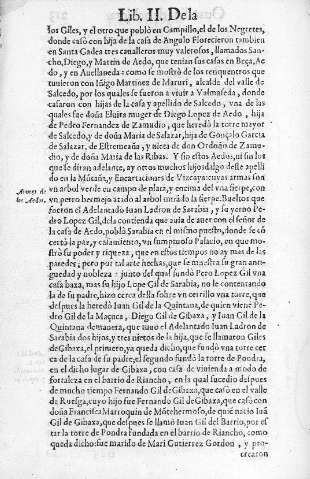 Lib. II. De la
los Giles, y el otro que poblò en Campillo, el de los Negretes,
donde casò con hija de la casa de Angulo Florecieron tambien
en Santa Gadea tres caualleros muy valerosos, llamados San-
cho, Diego, y Martin de Aedo, que tenian sus casas en Breça, Ae-
do, y en Auellaneda: como se mostrò de los renquentros que
tuuieron con Iñigo Martinez de Maruri, alcaide del valle de
Salcedo, por los quales se fueron a viuir a Valmaseda, donde
casaron con hijas de la casa y apellido de Salcedo, vna de las
quales fue doña Eluira muger de Diego Lopez de Aedo, hija
de Pedro Fernandez de Zamudio, que heredò la torre mayor
de Salcedo, y de doña Maria de Salazar, hija de Gonçalo Garcia
de Salazar, de Estremeaña, y nieta de don Ordoño de Zamu-
dio, y de doña Maria de las Ribas. Y sin estos Aedos, ni sin los
que se diran adelante, ay otros muchos hijosdalgo deste apelli-
do en la Mõtaña, y Encartaciones de Vizcaya: cuyas armas son
Armas de
los Aedos.
vn arbol verde en campo de plata, y encima del vna sierpe, con
vn perro bermejo atado al arbol mirãdo la sierpe. Bueltos que
fueron el Adelantado Iuan Ladron de Sarabia, y su yerno Pe-
dro Lopez Gil, de la contienda que auia de auer con el señor de
la casa de Aedo, poblò Sarabia en el mismo puesto, donde se cõ
certò la paz, y casamiento, vn sumptuoso Palacio, en que mo-
strò su poder y riqueza, que en estos tiempos no ay mas de las
paredes; pero por tal arte hechas, que se muestra su gran anti-
guedad y nobleza: junto del qual fundò Pero Lopez Gil vna
casa baxa, mas su hijo Lope Gil de Sarabia, no le contentando
la de su padre, hizo cerca della sobre vn cerrillo vna torre, que
despues la heredò Iuan Gil de la Quintana, de quien viene Pe-
dro Gil de la Maçuca, Diego Gil de Gibaxa, y Iuan Gil de la
Quintana de manera, que tuuo el Adelantado Iuan Ladron de
Sarabia dos hijos, y tres nietos de la hija, que se llamaron Giles
de Gibaxa, el primero, ya queda dicho, que fundò vna torre cer
ca de la casa de su padre, el segundo fundò la torre de Pondra,
en el dicho lugar de Gibaxa, con casa de vivienda a modo de
fortaleza en el barrio de Riancho, en la qual sucedio despues
de mucho tiempo Fernando Gil de Gibaxa, que casò en el valle
de Ruesga, cuyo hijo fue Fernando Gil de Gibaxa, que casò con
doña Francisca Marroquin de Mõtehermoso, de quiẽ nacio Iuã
Gil de Gibaxa, que despues se llamò Iuan Gil del Barrio, por es-
tar la torre de Pondra fundada en el barrio de Riancho, como
queda dicho: fue marido de Mari Gutierrez Gordon, y pro-
crearon